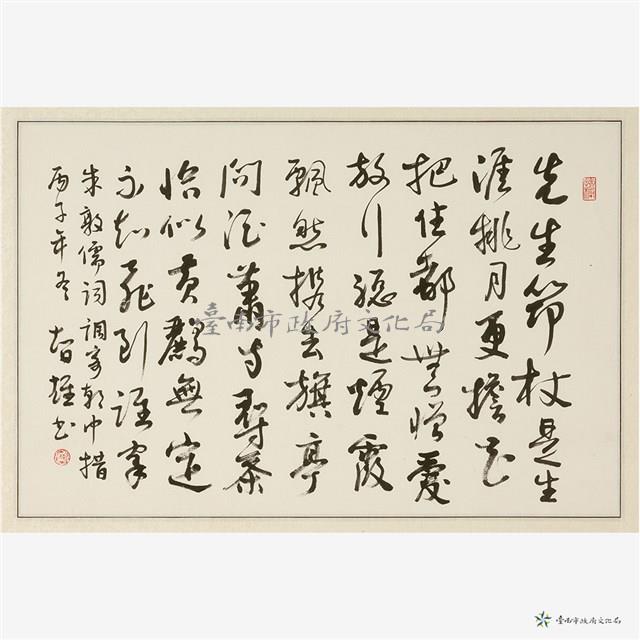 先生筇杖是生
涯挑月更擔花
把住都無憎愛
放行總是煙霞
飄然攜去旗亭
問酒蕭寺尋茶
恰似黃鸝無定
不知飛到誰家
朱敦儒詞調寄朝中措
丙子年冬 智雄書
臺南市政府文化局
臺南市政府文化局